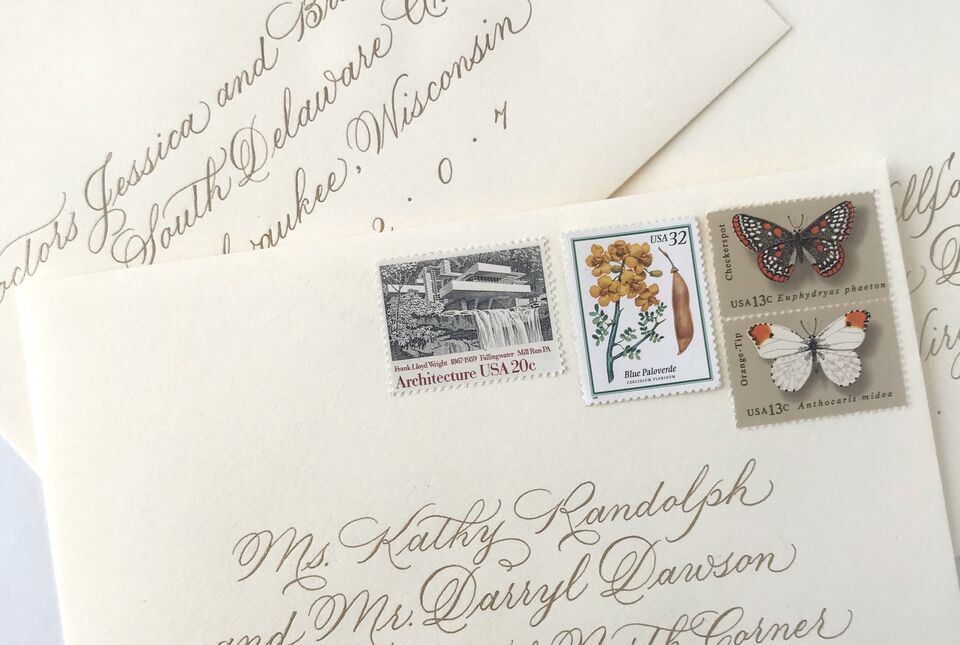 Doctors Jessica and
South Delaware
Wisconsin
0 7
Frank Lloyd Wright 1867-1959 Fallingwater Mill Run PA
Architecture USA 20c
USA 32
Blue Paloverde
CERCIDIUM FLORIDUM
Checkerspot
USA 13C Euphydryas phaeton
Orange-Tip
USA 13C Anthocaris midea
Ms. Kathy Randolph
and Mr. Darryl Dawson
Corner